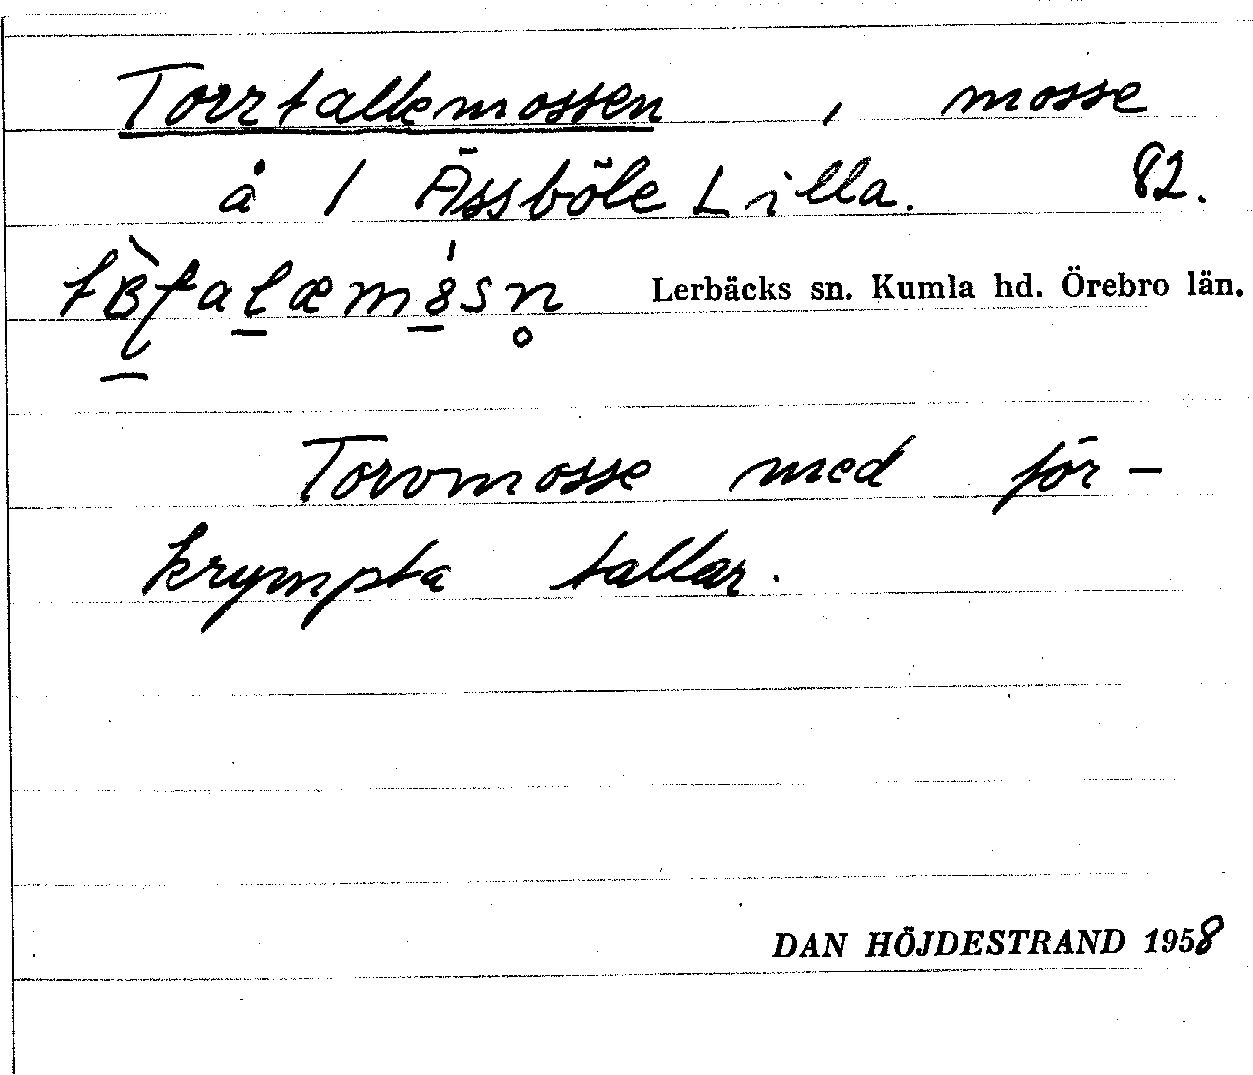 Torrtallemossen, mosse
å 1 Ässböle Lilla. 82.
Lerbäcks sn. Kumla hd. Örebro län.
Torvmosse med för-
krympta tallar.
DAN HÖJDESTRAND 1958